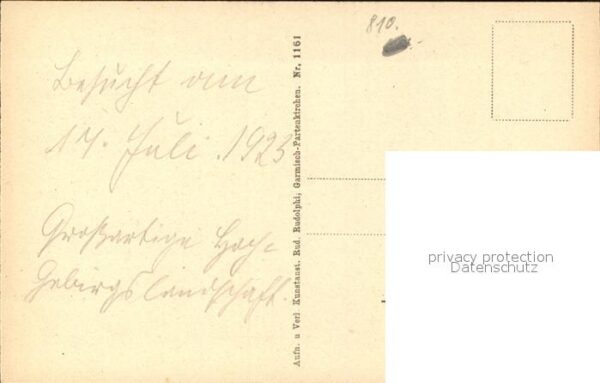 Besucht am
17. Juli 1923
Großartige Hoch-
Gebirgslandschaft.
Aufn. u Verl. Kunstanst. Rud. Rudolphi, Garmisch-Partenkirchen. Nr. 1161
810.
privacy protection
Datenschutz